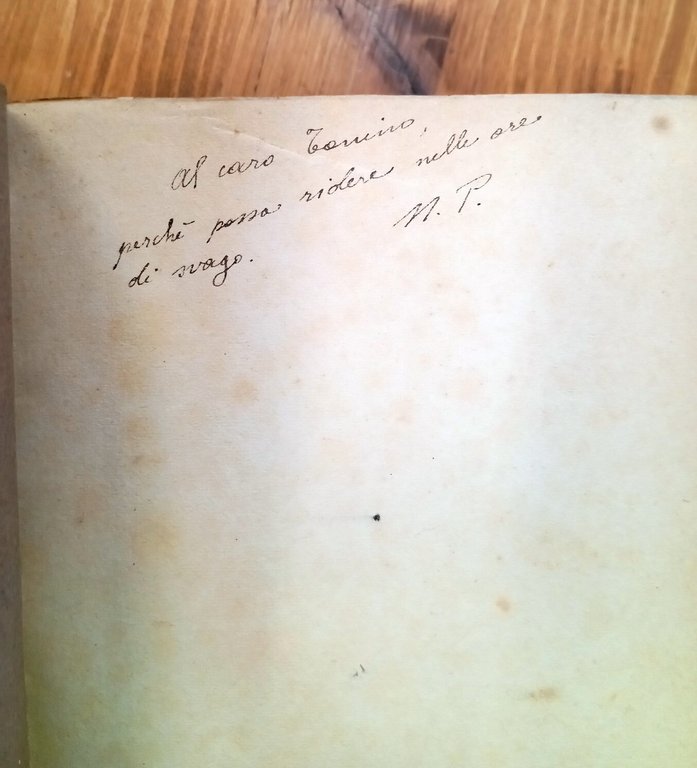 Al caro Tonino,
perchè possa ridere nelle ore
di svago.
N. P.